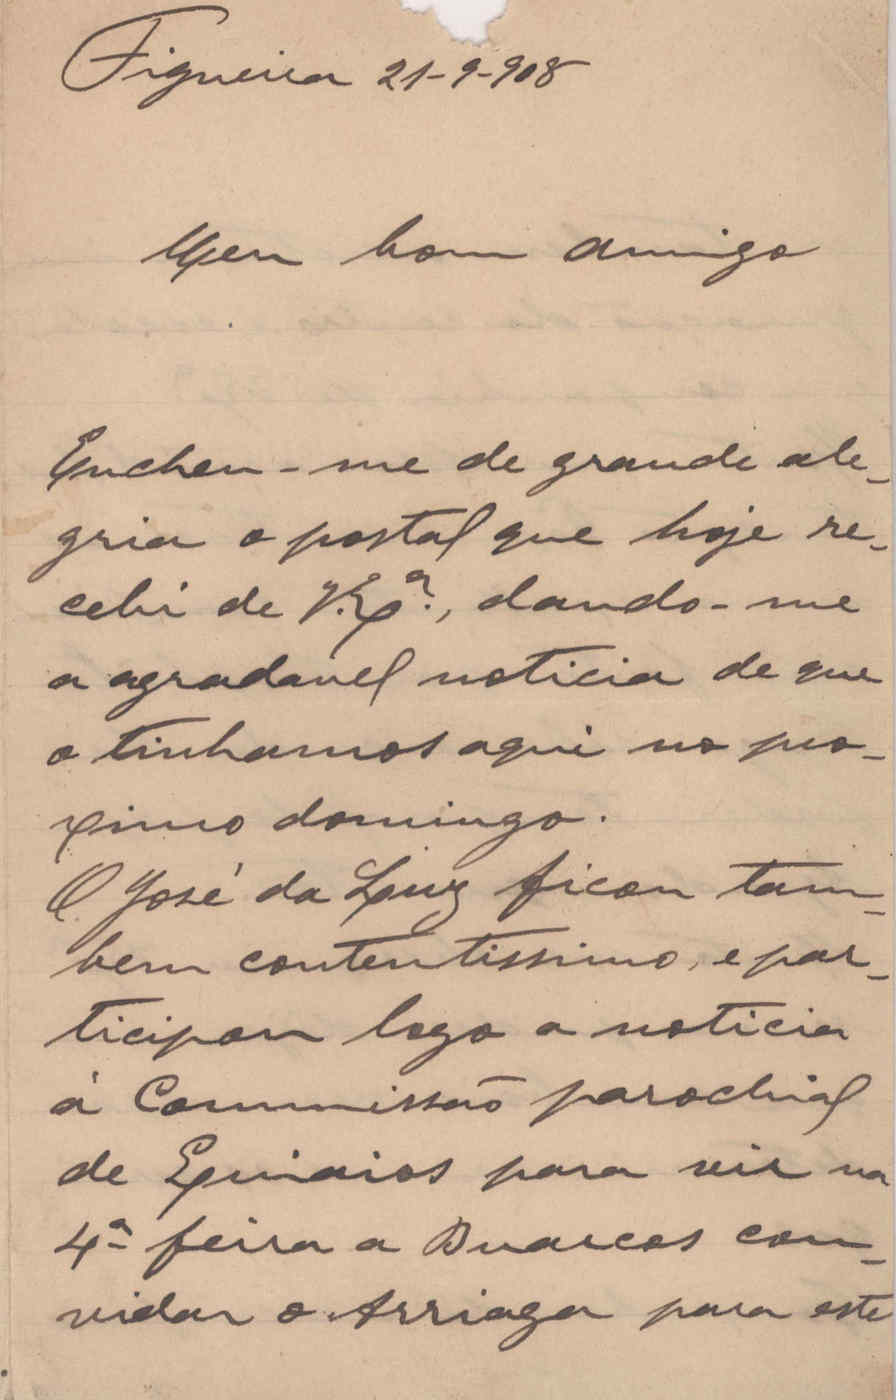 Figueira 21-9-908
Meu bom amigo
Encheu-me de grande ale-
gria o postal que hoje re-
cebi de V. Exª., dando-me
a agradavel noticia de que
o tinhamos aqui no pro-
ximo domingo.
O José da Luz ficou tam-
bem contentissimo, e par-
ticipou logo a noticia
á Commissão parochial
de Quiaios para vir na
4ª feira a Buarcos con-
vidar o Arriaga para este